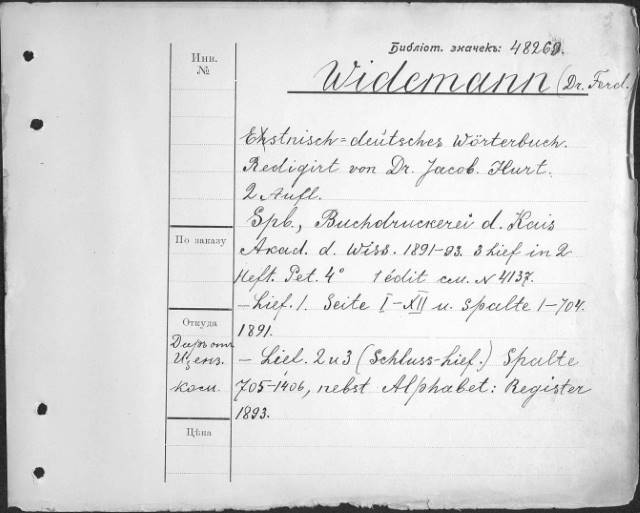 Библіот. значекъ: 48260.
Инв. №
Widemann (Dr. Ferd.
Ehstnisch=deutsches Wörterbuch.
Redigirt von Dr. Jacob. Hurt.
2 Aufl.
Spb., Buchdruckerei d. Kais
По заказу
Akad. d. Wiss. 1891-93. 3 Lief in 2
Heft. Pet. 4° 1 édit см. N 4137.
— Lief. 1. Seite I-XII u. Spalte 1-704.
1891.
Откуда
Даръ отъ
Ценз.
ком.
— Lief. 2 u 3 (Schluss-Lief.) Spalte
705-1406, nebst Alphabet: Register
1893.
Цѣна